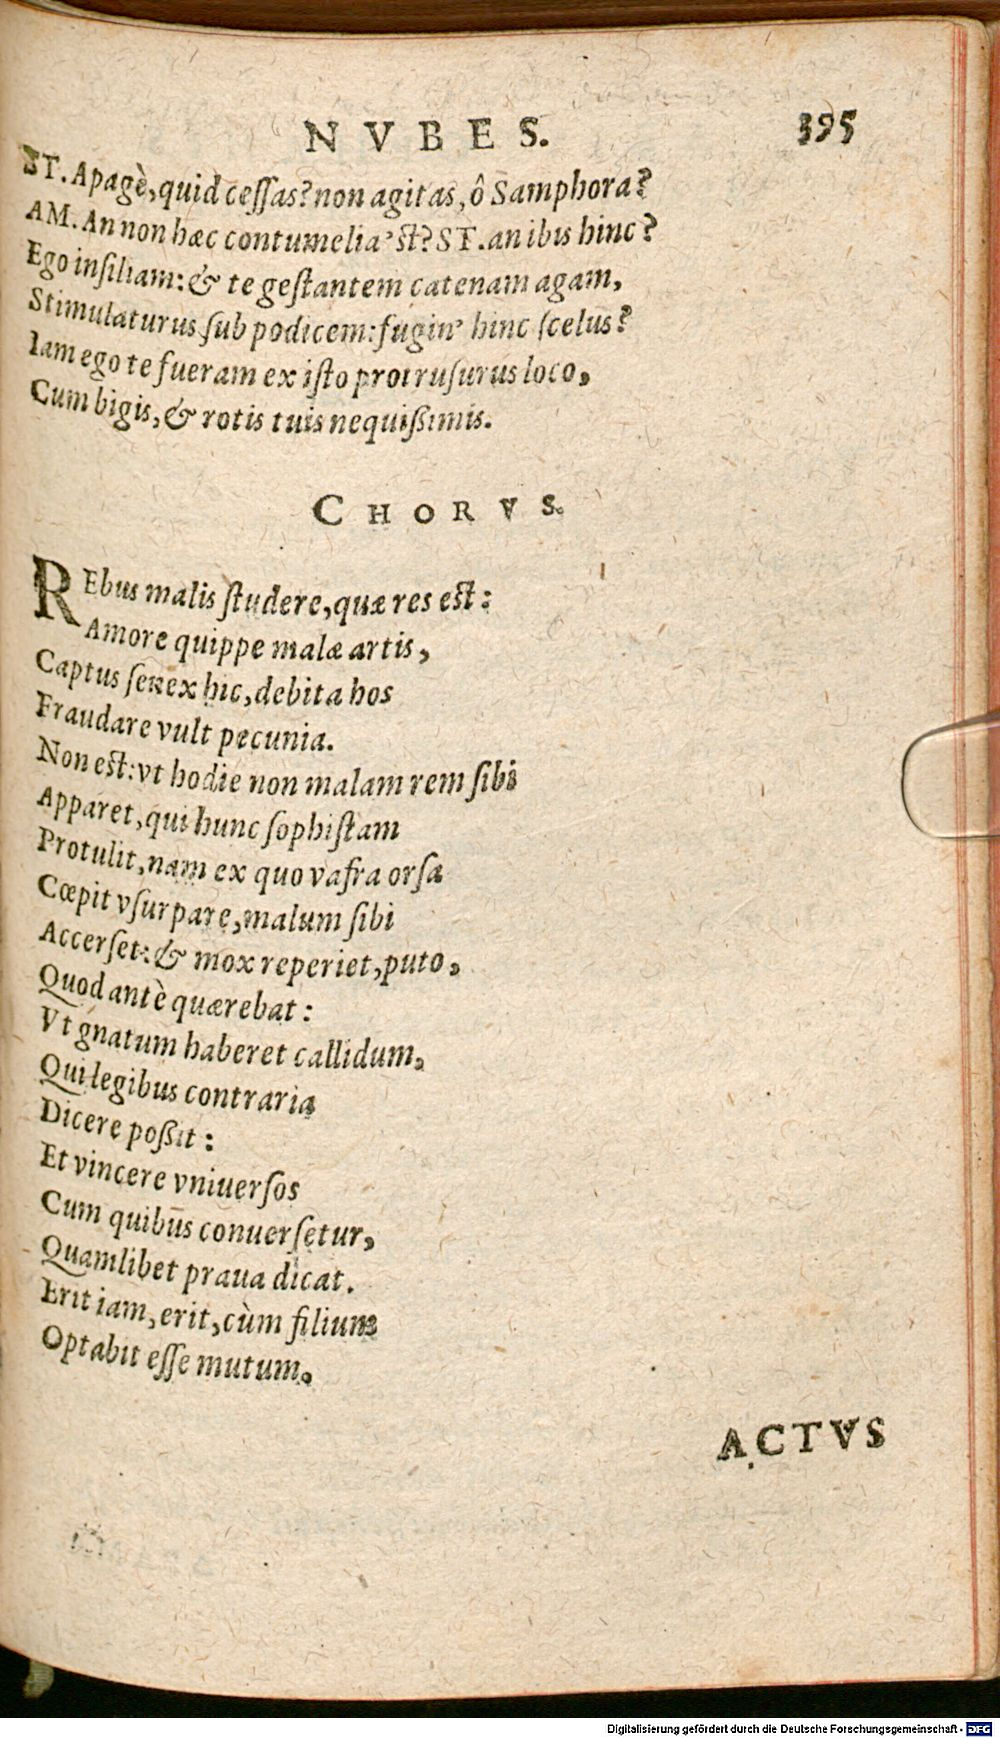 NVBES. 395
ST. Apagè, quid cessas? non agitas, ô Samphora?
AM. An non hæc contumelia'st? ST. an ibis hinc?
Ego insiliam: & te gestantem catenam agam,
Stimulaturus sub podicem: fugin' hinc scelus?
Iam ego te fueram ex isto protrusurus loco,
Cum bigis, & rotis tuis nequißimis.
CHORVS.
REbus malis studere, quæ res est:
Amore quippe malæ artis,
Captus senex hic, debita hos
Fraudare vult pecunia.
Non est: vt hodie non malam rem sibi
Apparet, qui hunc sophistam
Protulit, nam ex quo vafra orsa
Cœpit vsurpare, malum sibi
Accerset: & mox reperiet, puto,
Quod antè quærebat:
Vt gnatum haberet callidum,
Qui legibus contraria
Dicere poßit:
Et vincere vniuersos
Cum quibus conuersetur,
Quamlibet praua dicat.
Erit iam, erit, cùm filium
Optabit esse mutum.
ACTVS
Digitalisierung gefördert durch die Deutsche Forschungsgemeinschaft - DFG